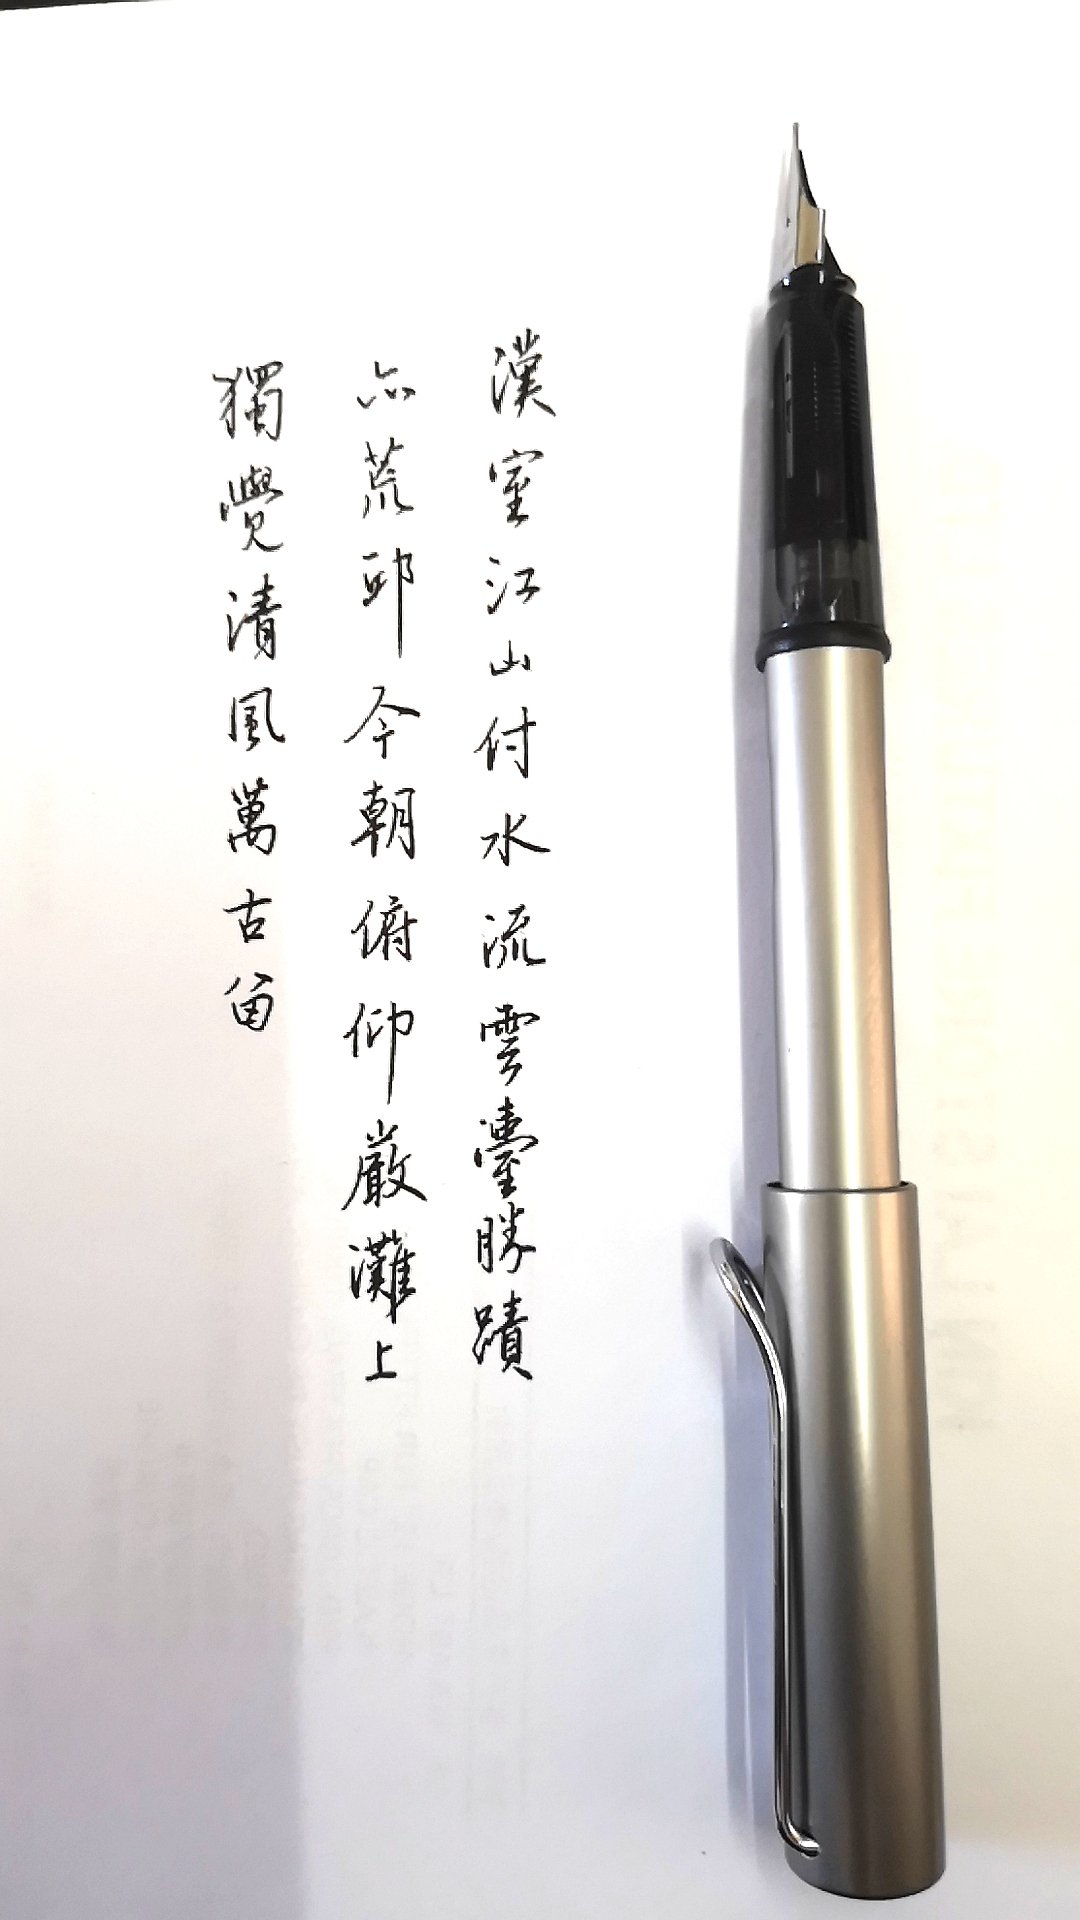 漢室江山付水流雲臺勝蹟
亦荒邱今朝俯仰嚴灘上
獨覺清風萬古留